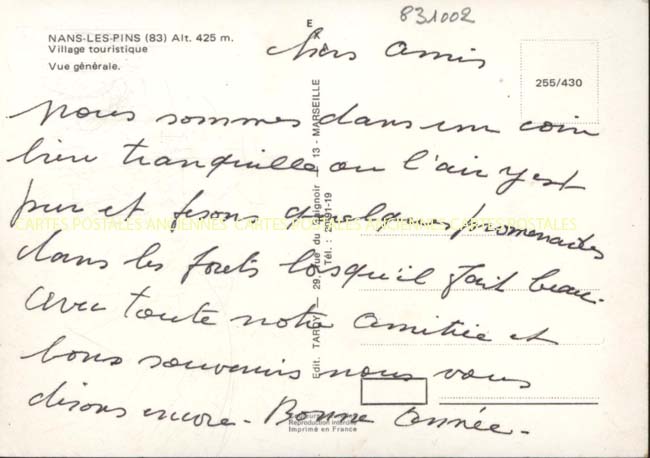 831002
NANS-LES-PINS (83) Alt. 425 m.
Village touristique
Vue générale.
255/430
Chers amis
nous sommes dans un coin
bien tranquille ou l'air y est
pur et fesons quelques promenades
dans les forêts lorsqu'il fait beau.
avec toute notre amitiée et
bons souvenirs nous vous
disons encore - Bonne année -
CARTES POSTALES ANCIENNES CARTES POSTALES ANCIENNES CARTES POSTALES
Edit. TARDY — 29, rue du — 13 - MARSEILLE
Tél. : 91-19
Reproduction interdite
Imprimé en France